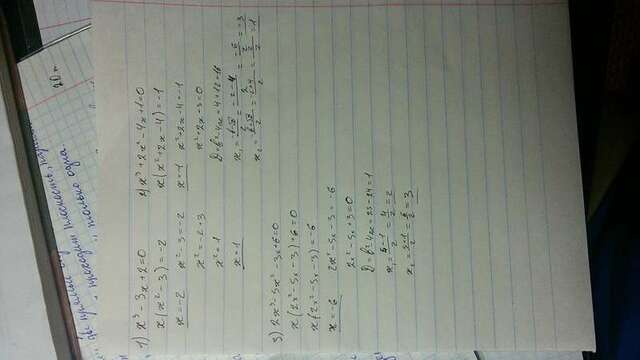 две прямые
проходит плоскость,
только одна.
20 т
1) x³ - 3x + 2 = 0
x(x² - 3) = -2
x = -2   x² - 3 = -2
x² = -2 + 3
x² = 1
x = 1
2) x³ + 2x² - 4x + 1 = 0
x(x² + 2x - 4) = -1
x = -1   x² + 2x - 4 = -1
x² + 2x - 3 = 0
D = b² - 4ac = 4 + 12 = 16
x₁ = = -2-4/2 = -6/2 = -3
x₂ = = = 2/2 = 1
3) 2x³ - 5x² - 3x + 6 = 0
x(2x² - 5x - 3) + 6 = 0
x(2x² - 5x - 3) = -6
x = -6   2x² - 5x - 3 = -6
2x² - 5x + 3 = 0
D = b² - 4ac = 25 - 24 = 1
x₁ = 5-1/2 = 4/2 = 2
x₂ = 5+1/2 = 6/2 = 3